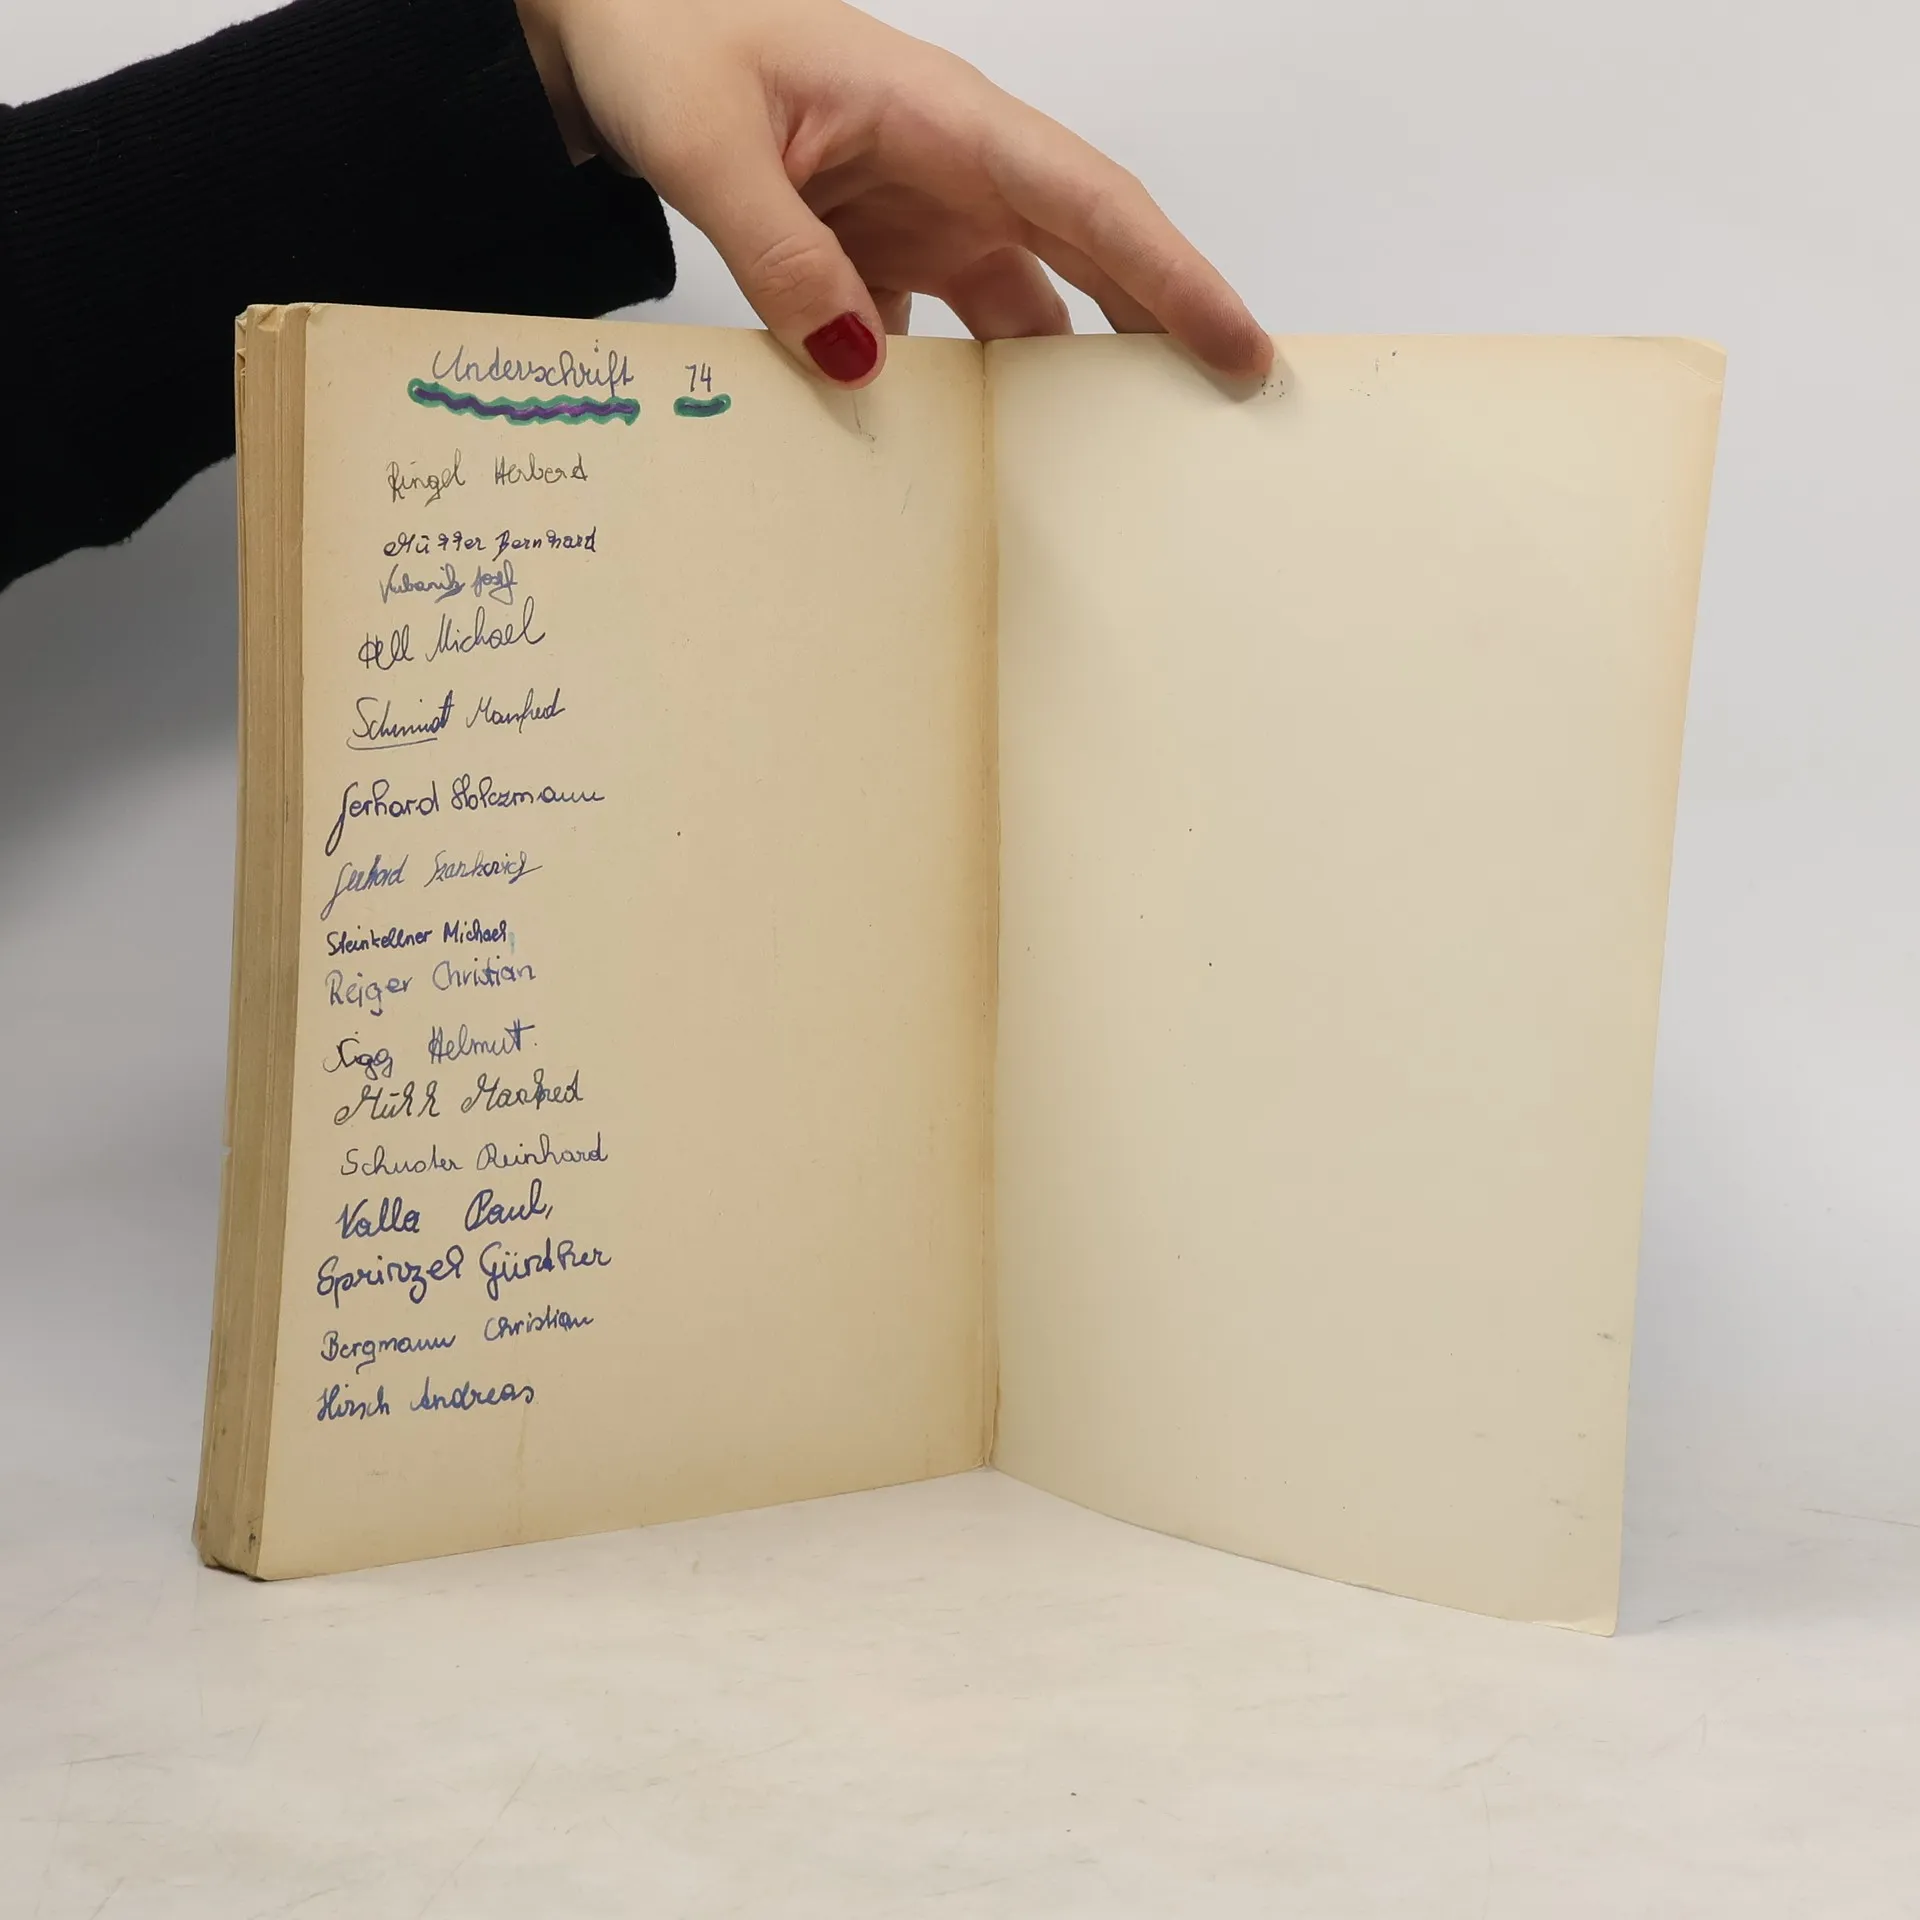 Underschrift 74
Ringel Herberd
Müller Bernhard
Kubanik Josef
Hell Michael
Schmidt Manfred
Gerhard Holczmann
Gerhard
Steinkellner Michael
Reiger Christian
Helmut.
Mühl Manfred
Schuster Reinhard
Valla Paul,
Sprinzel Günther
Bergmann Christian
Hirsch Andreas